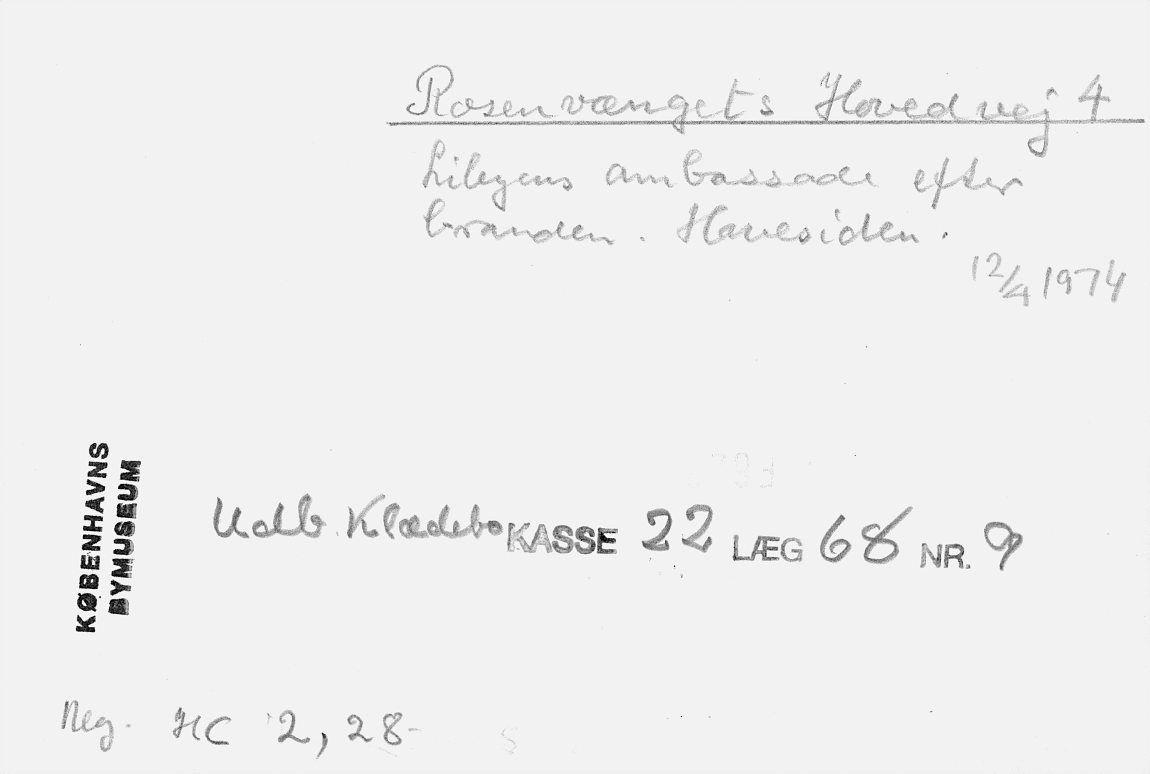 Rosenvængets Hovedvej 4
Libyens ambassade efter
branden. Havesiden.
12/4 1974
KØBENHAVNS
BYMUSEUM
Udb. Klædebo KASSE 22 LÆG 68 NR. 9
Neg. HC 2, 28